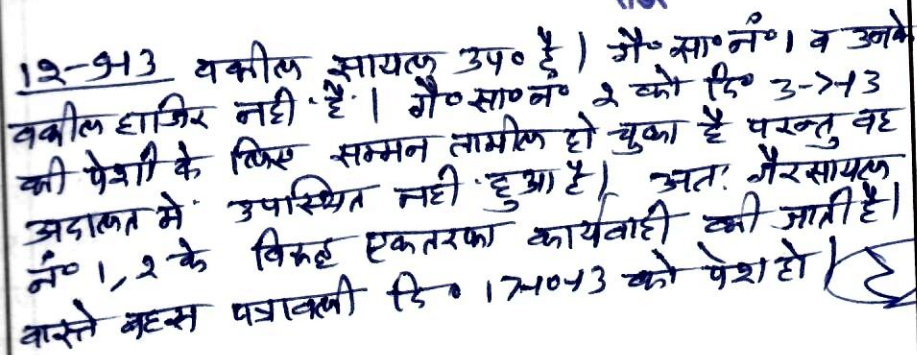 12-9-13 वकील सायल उप० है। गै० सा० नं० 1 व उनके
वकील हाजिर नही है। गै० सा० न० 2 को दि० 3-7-13
की पेशी के लिए सम्मन तामील हो चुका है परन्तु वह
अदालत मे उपस्थित नही हुआ है। अतः गैरसायल
नं० 1, 2 के विरूद्ध एकतरफा कार्यवाही की जाती है।
वास्ते बहस पत्रावली दि० 17-10-13 को पेश हो।